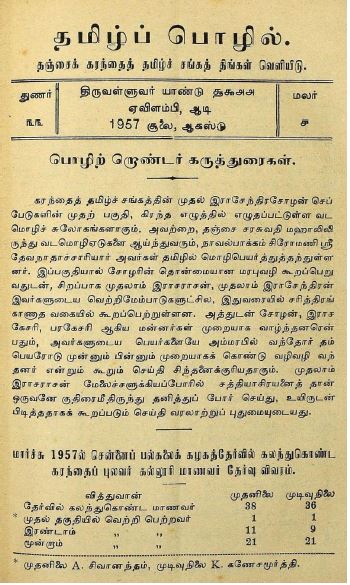 தமிழ்ப் பொழில்.
தஞ்சைக் கரந்தைத் தமிழ்ச் சங்கத் திங்கள் வெளியீடு.
துணர் திருவள்ளுவர் யாண்டு ௧௯௮௮ மலர்
௩௩ ஏவிளம்பி, ஆடி ௪
1957 சூலை, ஆகஸ்டு
பொழிற் றொண்டர் கருத்துரைகள்.
கரந்தைத் தமிழ்ச் சங்கத்தின் முதல் இராசேந்திரசோழன் செப்
பேடுகளின் முதற் பகுதி, கிரந்த எழுத்தில் எழுதப்பட்டுள்ள வட
மொழிச் சுலோகங்களாகும், அவற்றை, தஞ்சை சரசுவதி மஹாலிலி
ருந்து வடமொழிஏடுகளை ஆய்ந்துவரும், நாவல்பாக்கம் சிரோமணி ஸ்ரீ
தேவநாதாச்சாரியார் அவர்கள் தமிழில் மொழிபெயர்த்துத்தந்துள்ள
னர். இப்பகுதியால் சோழரின் தொன்மையான மரபுவழி கூறப்பெறு
வதுடன், சிறப்பாக முதலாம் இராசராசன், முதலாம் இராசேந்திரன்
இவர்களுடைய வெற்றிமேம்பாடுகளுட்சில, இதுவரையில் சரித்திரங்
காணாத வகையில் கூறப்பெற்றுள்ளன. அத்துடன் சோழன், இராச
கேசரி, பரகேசரி ஆகிய மன்னர்கள் முறையாக வாழ்ந்தனரென்
பதும், அவர்களுடைய பெயர்களையே அம்மரபில் வந்தோர் தம்
பெயரோடு முன்னும் பின்னும் முறையாகக் கொண்டு வழிவழி வந்
தனர் என்றும் கூறும் செய்தி சிந்தனைக்குரியதாகும். முதலாம்
இராசராசன் மேலைச்சளுக்கியப்போரில் சத்தியாசிரயனைத் தான்
ஒருவனே குதிரைமீதிருந்து தனித்துப் போர் செய்து, உயிருடன்
பிடித்ததாகக் கூறப்படும் செய்தி வரலாற்றுப் புதுமையுடையது.
மார்ச்சு 1957ல் சென்னைப் பல்கலைக் கழகத்தேர்வில் கலந்துகொண்ட
கரந்தைப் புலவர் கல்லூரி மாணவர் தேர்வு விவரம்.
வித்துவான் முதனிலை முடிவுநிலை
தேர்வில் கலந்துகொண்ட மாணவர் 38 36
* முதல் தகுதியில் வெற்றி பெற்றவர் 1 1
இரண்டாம் ,, ,, 11 9
மூன்றாம் ,, ,, 21 21
* முதனிலை A. சிவானந்தம், முடிவுநிலை K. கணேசமூர்த்தி.